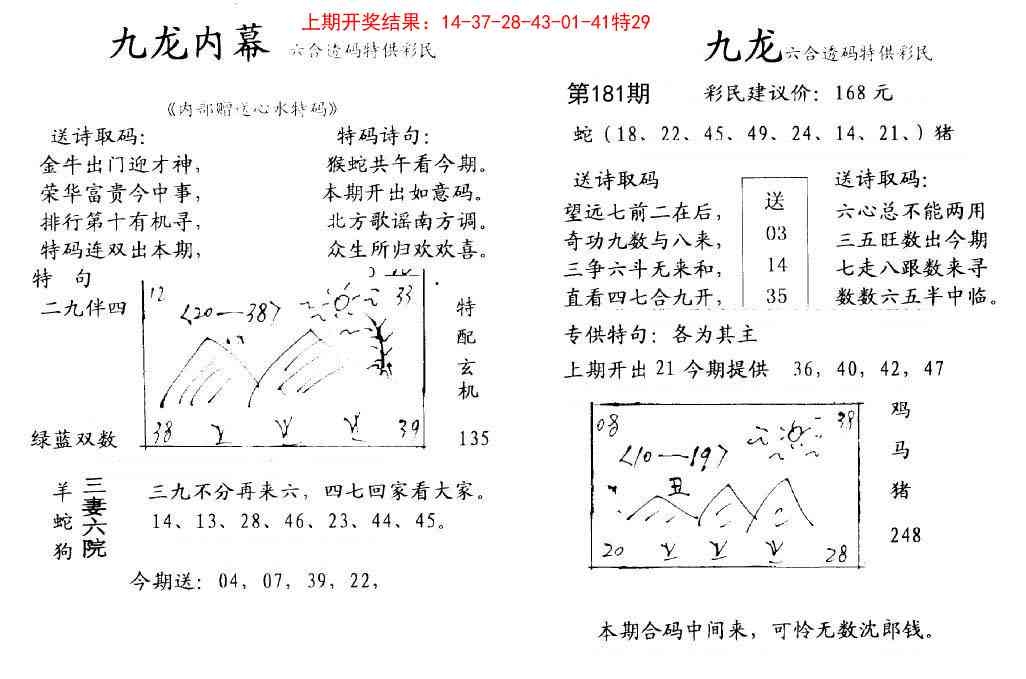 上期开奖结果：14-37-28-43-01-41特29
九龙内幕 六合透码特供彩民
《内部赠送心水特码》
送诗取码：
金牛出门迎才神，
荣华富贵今中事，
排行第十有机寻，
特码连双出本期，
特码诗句：
猴蛇共午看今期。
本期开出如意码。
北方歌谣南方调。
众生所归欢欢喜。
特 句
二九伴四
绿蓝双数
12
33
〈20—38〉
38
39
特
配
玄
机
135
羊
蛇
狗
三妻六院
三九不分再来六，四七回家看大家。
14、13、28、46、23、44、45。
今期送：04，07，39，22，
九龙六合透码特供彩民
第181期 彩民建议价：168元
蛇（18、22、45、49、24、14、21、）猪
送诗取码
望远七前二在后，
奇功九数与八来，
三争六斗无来和，
直看四七合九开，
送
03
14
35
送诗取码：
六心总不能两用
三五旺数出今期
七走八跟数来寻
数数六五半中临。
专供特句：各为其主
上期开出21今期提供 36，40，42，47
08
〈10—19〉
丑
20
28
鸡
马
猪
248
本期合码中间来，可怜无数沈郎钱。